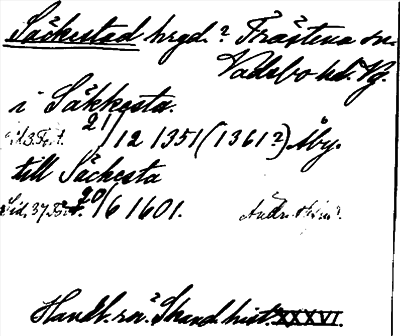 Säckestad hrgd.? Fräštena sn.
Vadsbo hd. Vg.
i Säkkesta.
21/12 1351 (1361?) Åby.
till Säckesta
Sid. 37 20/6 1601.
Handl. rör. Skand. hist. XXXVI.